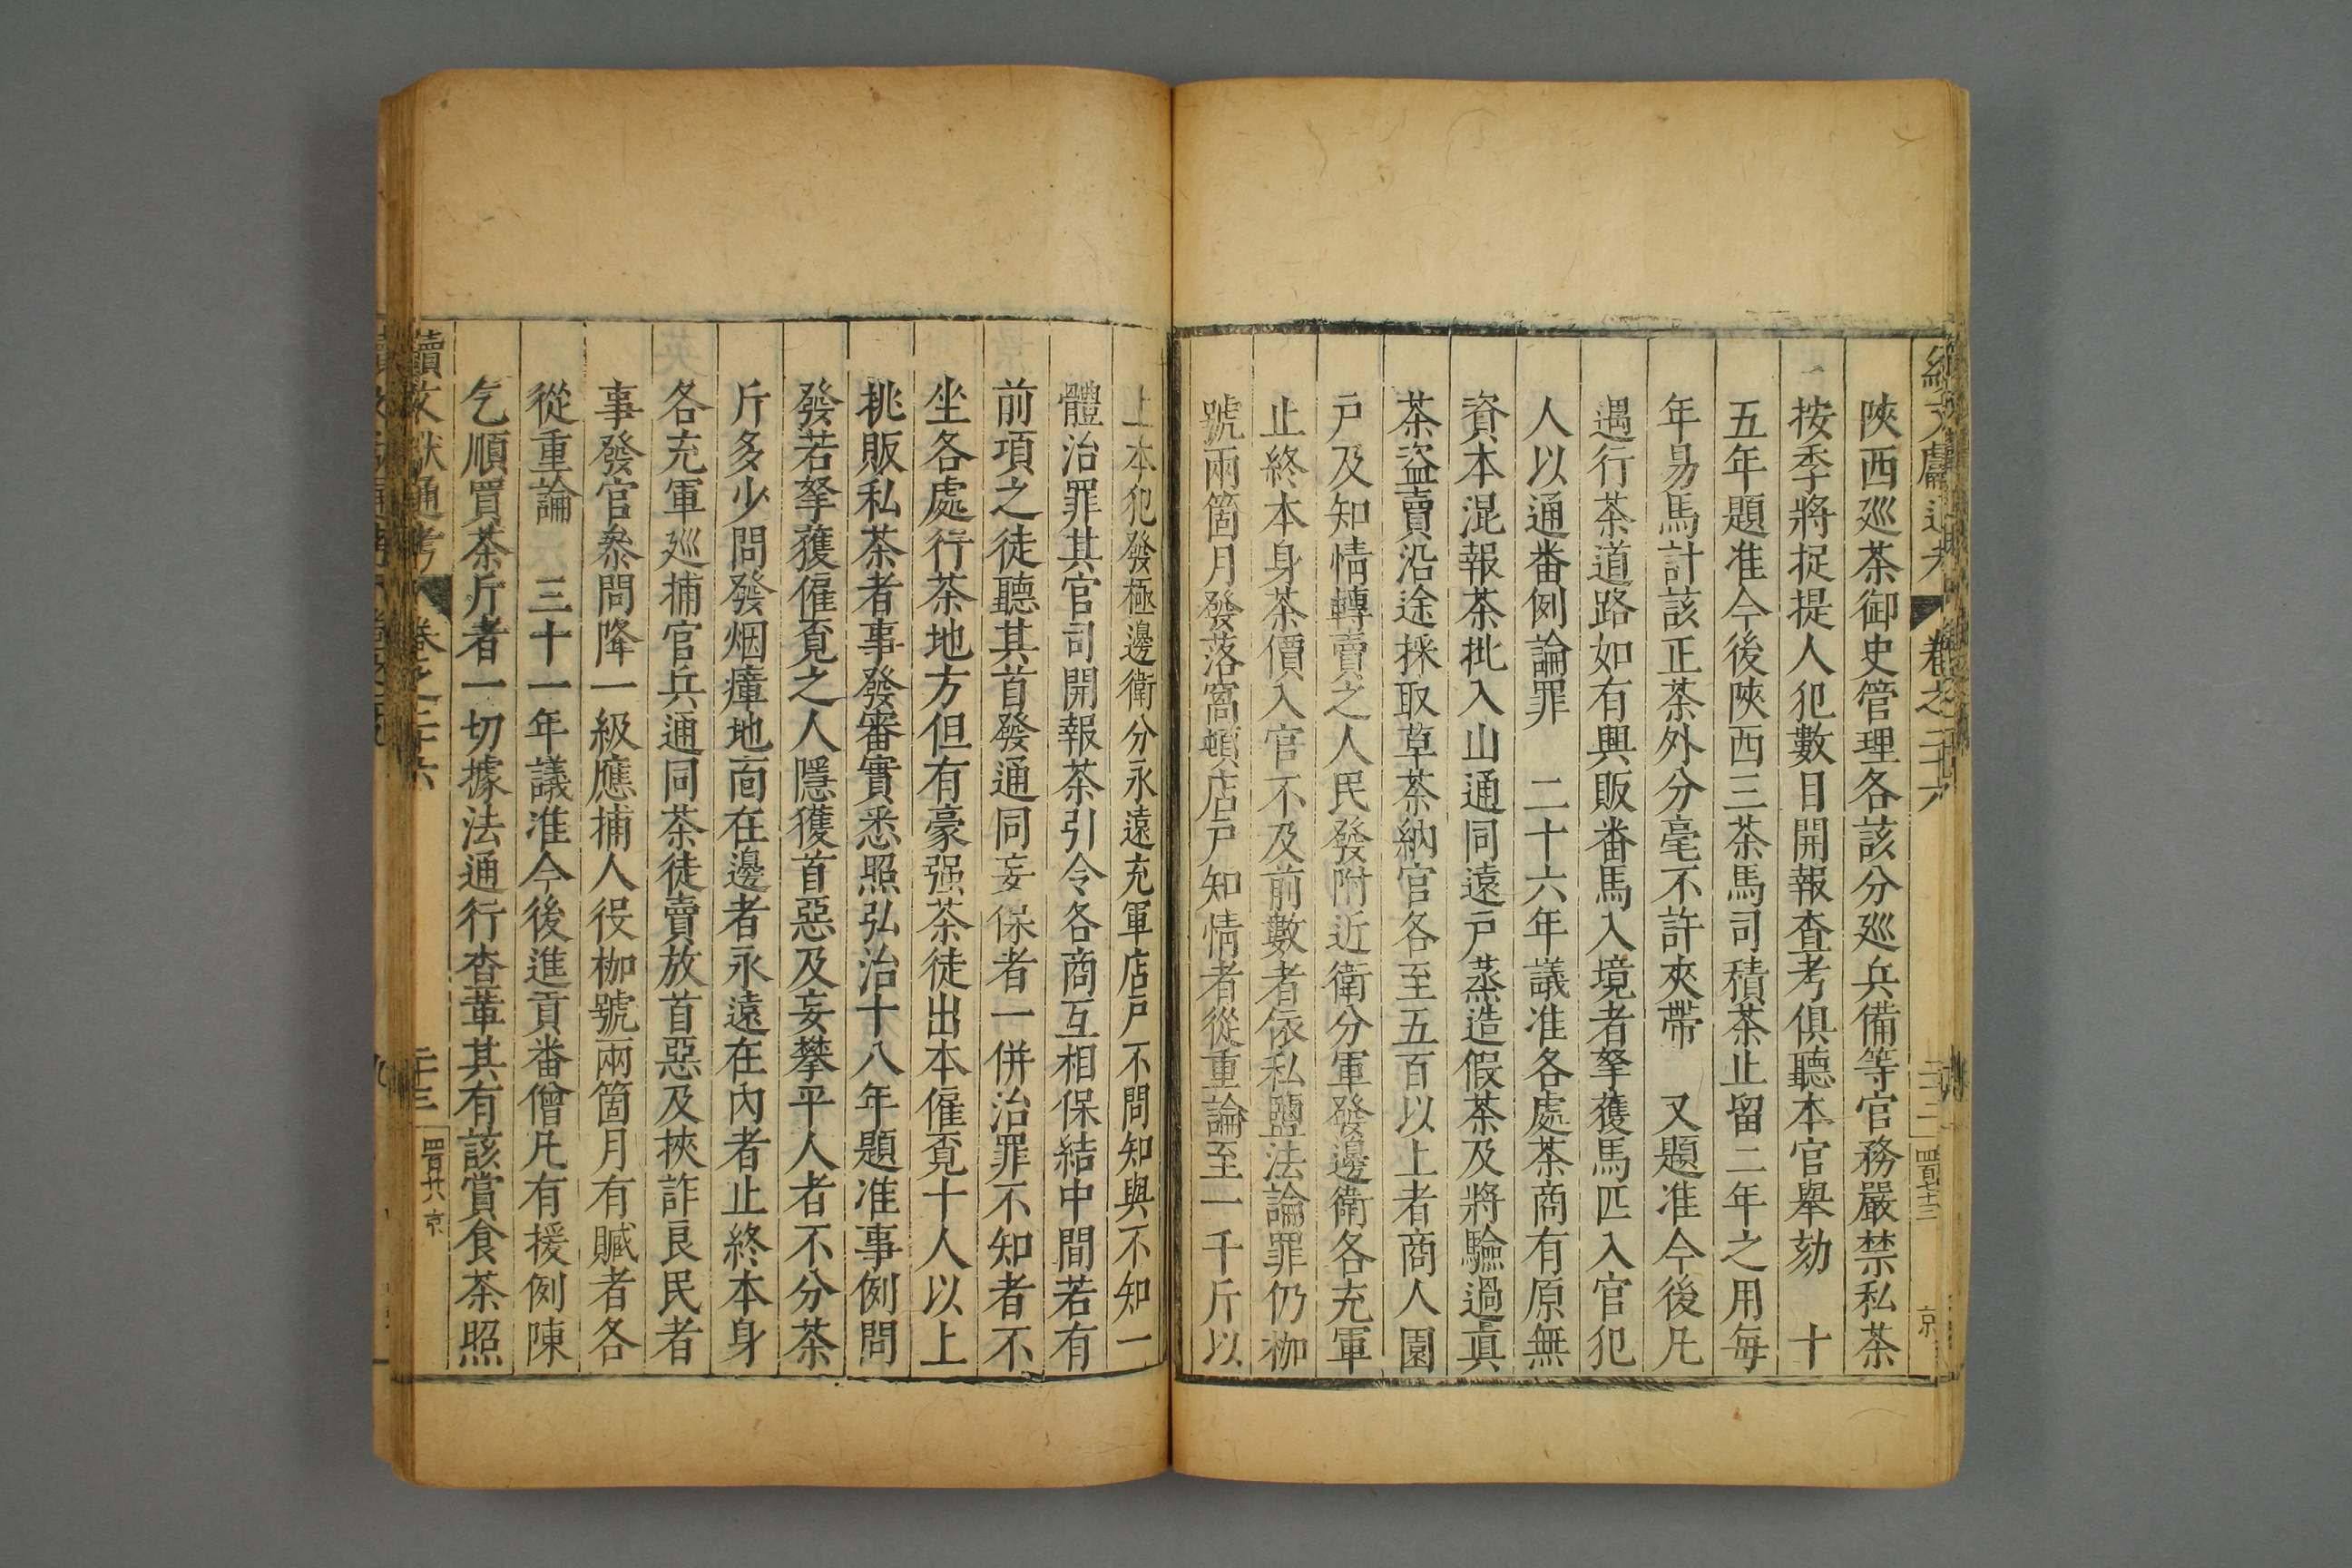 陝西廵茶御史管理各該分廵兵備等官務嚴禁私茶
按季將捉提人犯數目開報查考俱聽本官舉劾　十
五年題准今後陝西三茶馬司積茶止留二年之用每
年易馬計該正茶外分毫不許夾帶　又題准今後凡
遇行茶道路如有興販番馬入境者拏獲馬匹入官犯
人以通番例論罪　二十六年議准各處茶商有原無
資本混報茶批入山通同遠戸蒸造假茶及將驗過眞
茶盜賣沿途採取草茶納官各至五百以上者商人園
戸及知情轉賣之人民發附近衛分軍發邊衛各充軍
止終本身茶價入官不及前數者依私鹽法論罪仍枷
號兩箇月發落窩頓店戸知情者從重論至一千斤以
上本犯發極邊衛分永遠充軍店戸不問知與不知一
體治罪其官司開報茶引令各商互相保結中間若有
前項之徒聽其首發通同妄保者一併治罪不知者不
坐各處行茶地方但有豪强茶徒出本僱覔十人以上
挑販私茶者事發審實悉照弘治十八年題准事例問
發若拏獲僱覔之人隱獲首惡及妄攀平人者不分茶
斤多少問發烟瘴地面在邊者永遠在內者止終本身
各充軍廵捕官兵通同茶徒賣放首惡及挾詐良民者
事發官叅問降一級應捕人役枷號兩箇月有贓者各
從重論　三十一年議准今後進貢番僧凡有援例陳
乞順買茶斤者一切據法通行查革其有該賞食茶照
續文獻通考　卷之二十六　二十三　四百廿八　京